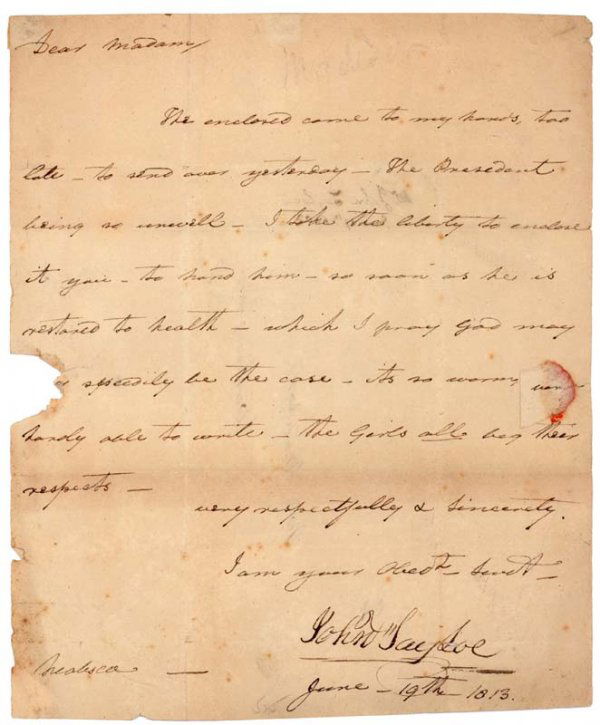 Dear Madam,
The enclosed came to my hands, too
late - to send over yesterday - The President
being so unwell - I take the liberty to enclose
it you - to hand him - so soon as he is
restored to health - which I pray God may
speedily be the case - its so warm,
hardly able to write - the Girls all beg their
respects -
very respectfully & Sincerely.
I am your Obedt- Servt-
John Tayloe
Neabsco -
June - 19th - 1813.